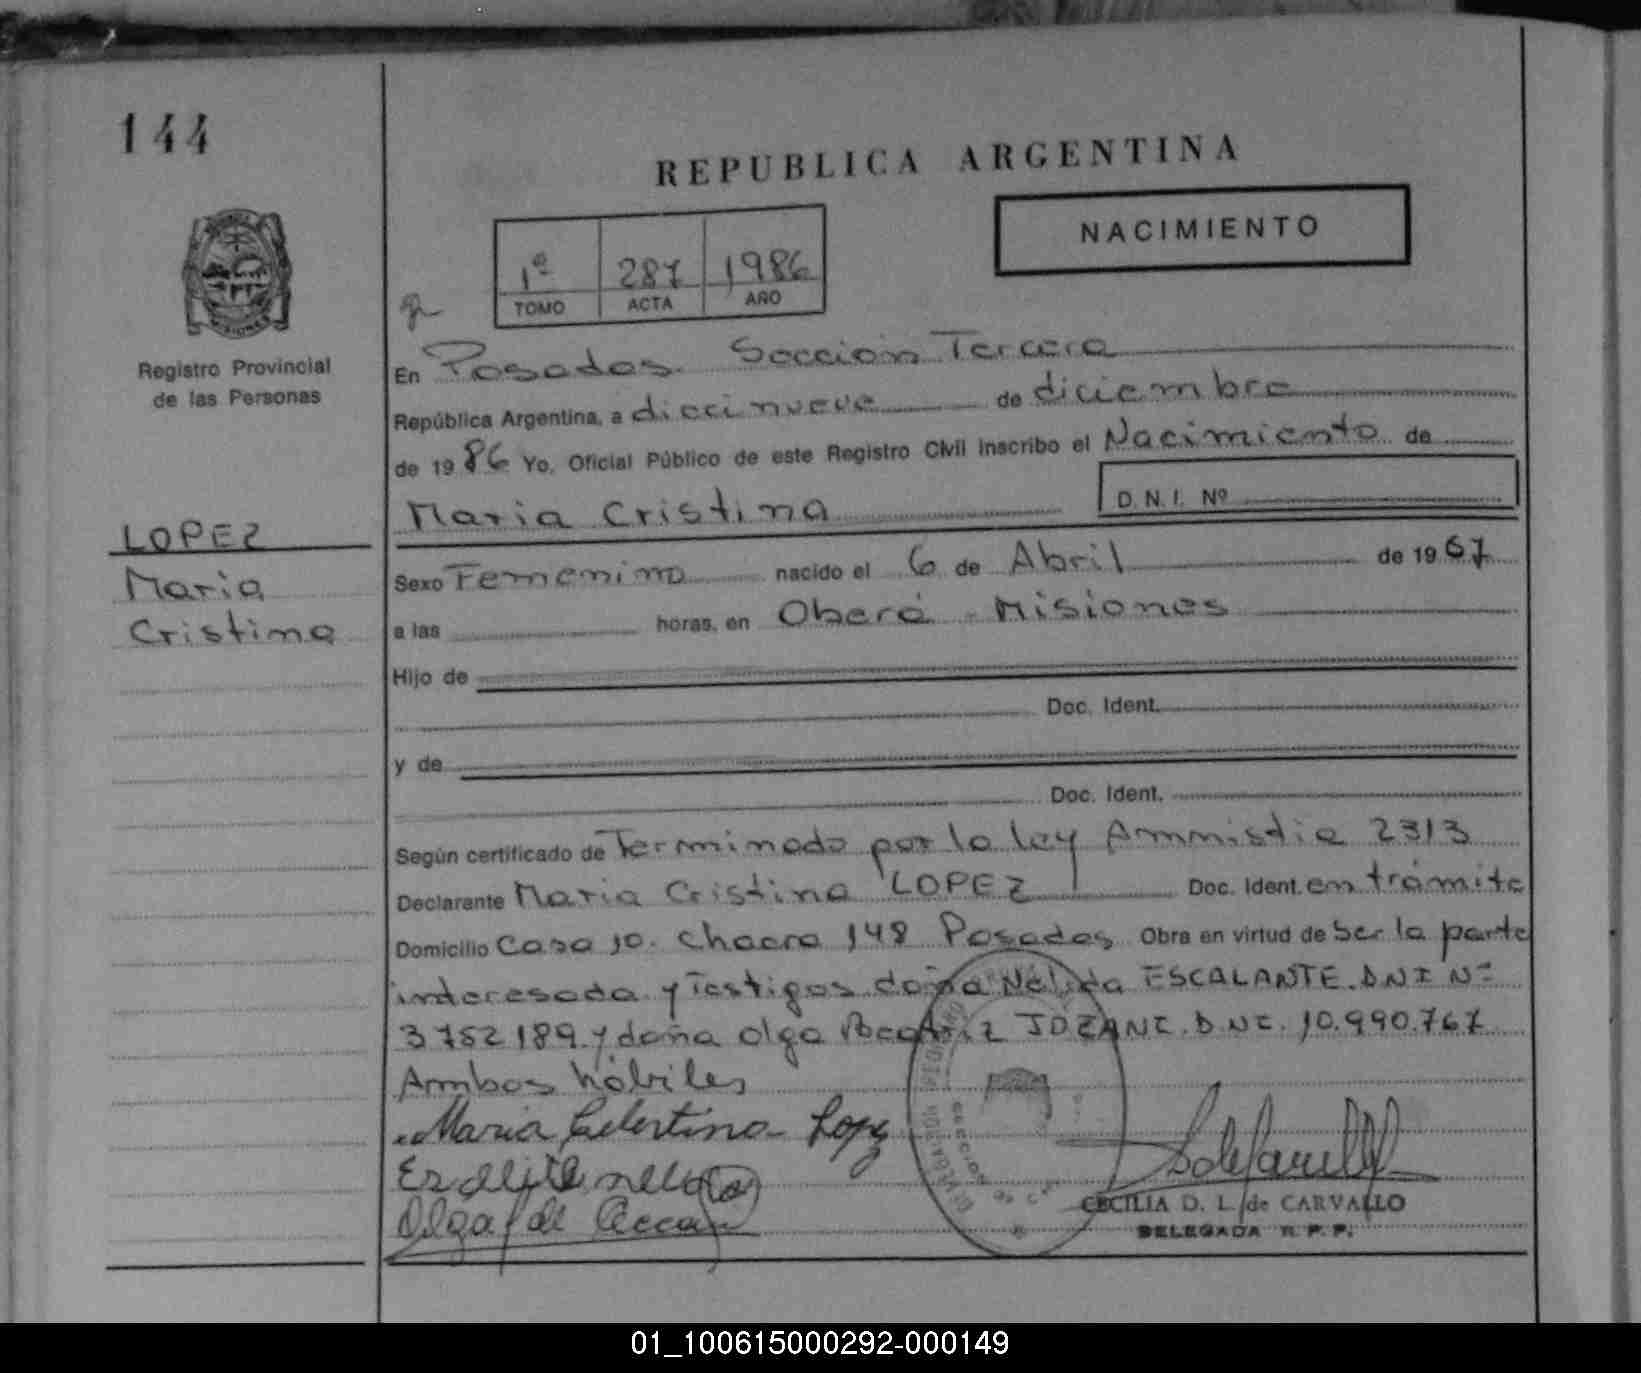 144
REPUBLICA ARGENTINA
NACIMIENTO
1º 287 1986
TOMO ACTA AÑO
Registro Provincial
de las Personas
MISIONES
En Posadas. Sección Tercera
República Argentina, a diecinueve de diciembre
de 1986 Yo, Oficial Público de este Registro Civil inscribo el Nacimiento de
Maria Cristina D.N.I. Nº
LOPEZ
Maria
Cristina
Sexo Femenino nacido el 6 de Abril de 1967
a las horas, en Oberá - Misiones
Hijo de
Doc. Ident.
y de
Doc. Ident.
Según certificado de Terminado por la ley Amnistia 2313
Declarante Maria Cristina LOPEZ Doc. Ident. en trámite
Domicilio Casa 10. Chacra 148 Posadas Obra en virtud de Ser la parte
interesada y Testigos doña Nélida ESCALANTE. DNI Nº
3752189 y doña Olga Beatriz DNI. 10.990.767
Ambos hábiles
Maria Lopez
Olga de
CECILIA D. L. de CARVALLO
DELEGADA R. P. P.
01_100615000292-000149